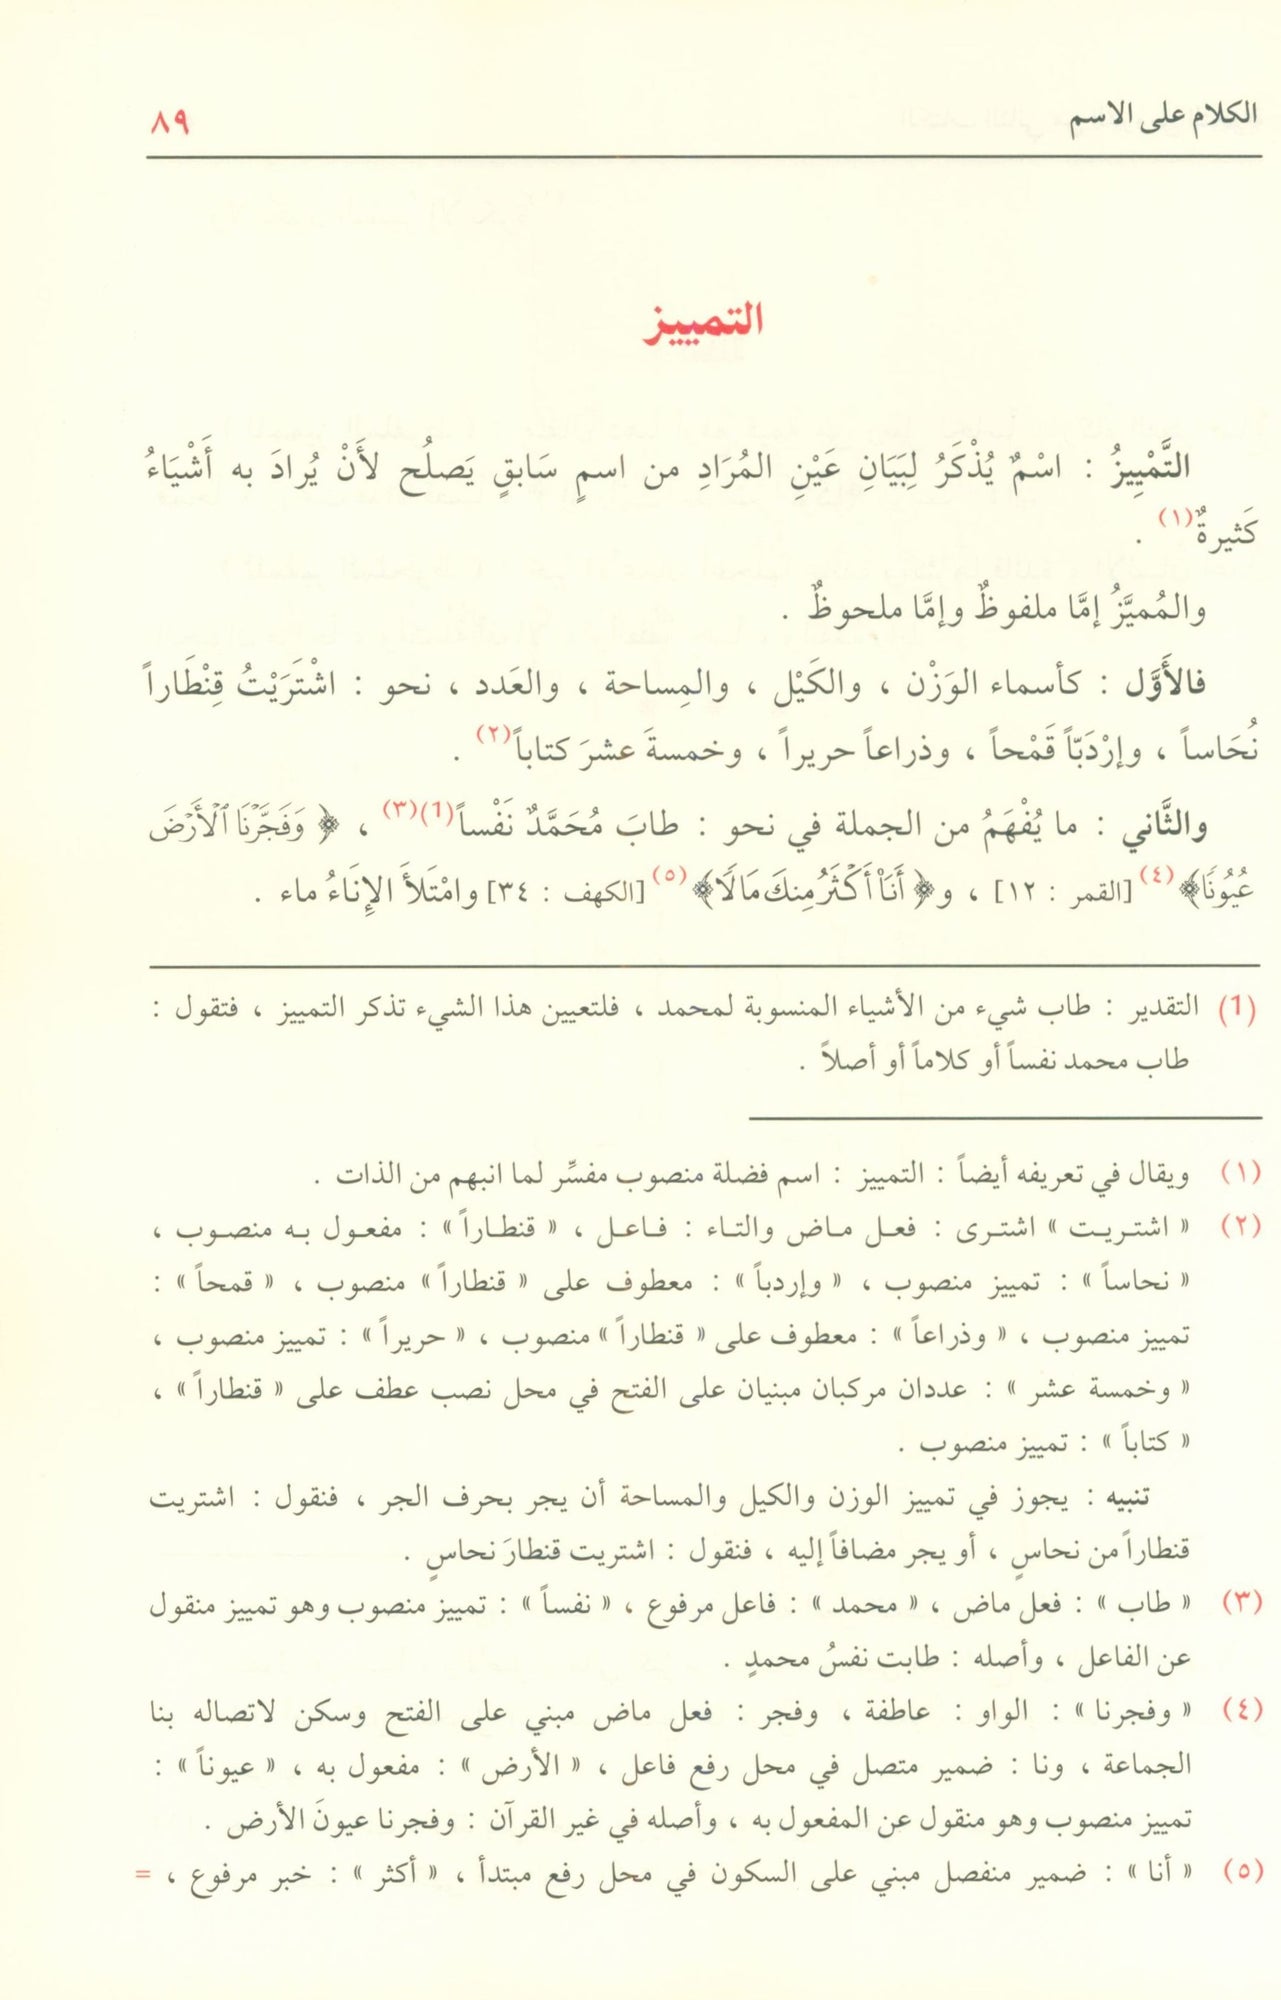 الكلام على الاسم
٨٩
التمييز
التَّمْيِيزُ : اسْمٌ يُذْكَرُ لِبَيَانِ عَيْنِ المُرَادِ من اسمٍ سَابقٍ يَصلُح لأَنْ يُرادَ به أَشْيَاءُ
كَثيرةٌ(١) .
والمُميَّزُ إمَّا ملفوظٌ وإمَّا ملحوظٌ .
فالأَوَّل : كأسماء الوَزْن ، والكَيْل ، والمِساحة ، والعَدد ، نحو : اشْتَرَيْتُ قِنْطَاراً
نُحَاساً ، وإرْدَبّاً قَمْحاً ، وذراعاً حريراً ، وخمسةَ عشرَ كتاباً(٢) .
والثَّاني : ما يُفْهَمُ من الجملة في نحو : طابَ مُحَمَّدٌ نَفْساً(1)(٣) ، ﴿ وَفَجَّرْنَا ٱلْأَرْضَ
عُيُونًا﴾(٤) [القمر : ١٢] ، و﴿ أَنَا۠ أَكْثَرُ مِنكَ مَالًا﴾(٥) [الكهف : ٣٤] وامْتَلأَ الإِنَاءُ ماء .
(1) التقدير : طاب شيء من الأشياء المنسوبة لمحمد ، فلتعيين هذا الشيء تذكر التمييز ، فتقول :
طاب محمد نفساً أو كلاماً أو أصلاً .
(١) ويقال في تعريفه أيضاً : التمييز : اسم فضلة منصوب مفسِّر لما انبهم من الذات .
(٢) « اشتريت » اشترى : فعل ماض والتاء : فاعل ، « قنطاراً » : مفعول به منصوب ،
« نحاساً » : تمييز منصوب ، « وإردباً » : معطوف على « قنطاراً » منصوب ، « قمحاً » :
تمييز منصوب ، « وذراعاً » : معطوف على « قنطاراً » منصوب ، « حريراً » : تمييز منصوب ،
« وخمسة عشر » : عددان مركبان مبنيان على الفتح في محل نصب عطف على « قنطاراً » ،
« كتاباً » : تمييز منصوب .
تنبيه : يجوز في تمييز الوزن والكيل والمساحة أن يجر بحرف الجر ، فنقول : اشتريت
قنطاراً من نحاسٍ ، أو يجر مضافاً إليه ، فنقول : اشتريت قنطارَ نحاسٍ .
(٣) « طاب » : فعل ماض ، « محمد » : فاعل مرفوع ، « نفساً » : تمييز منصوب وهو تمييز منقول
عن الفاعل ، وأصله : طابت نفسُ محمدٍ .
(٤) « وفجرنا » : الواو : عاطفة ، وفجر : فعل ماض مبني على الفتح وسكن لاتصاله بنا
الجماعة ، ونا : ضمير متصل في محل رفع فاعل ، « الأرض » : مفعول به ، « عيوناً » :
تمييز منصوب وهو منقول عن المفعول به ، وأصله في غير القرآن : وفجرنا عيونَ الأرض .
(٥) « أنا » : ضمير منفصل مبني على السكون في محل رفع مبتدأ ، « أكثر » : خبر مرفوع ، =